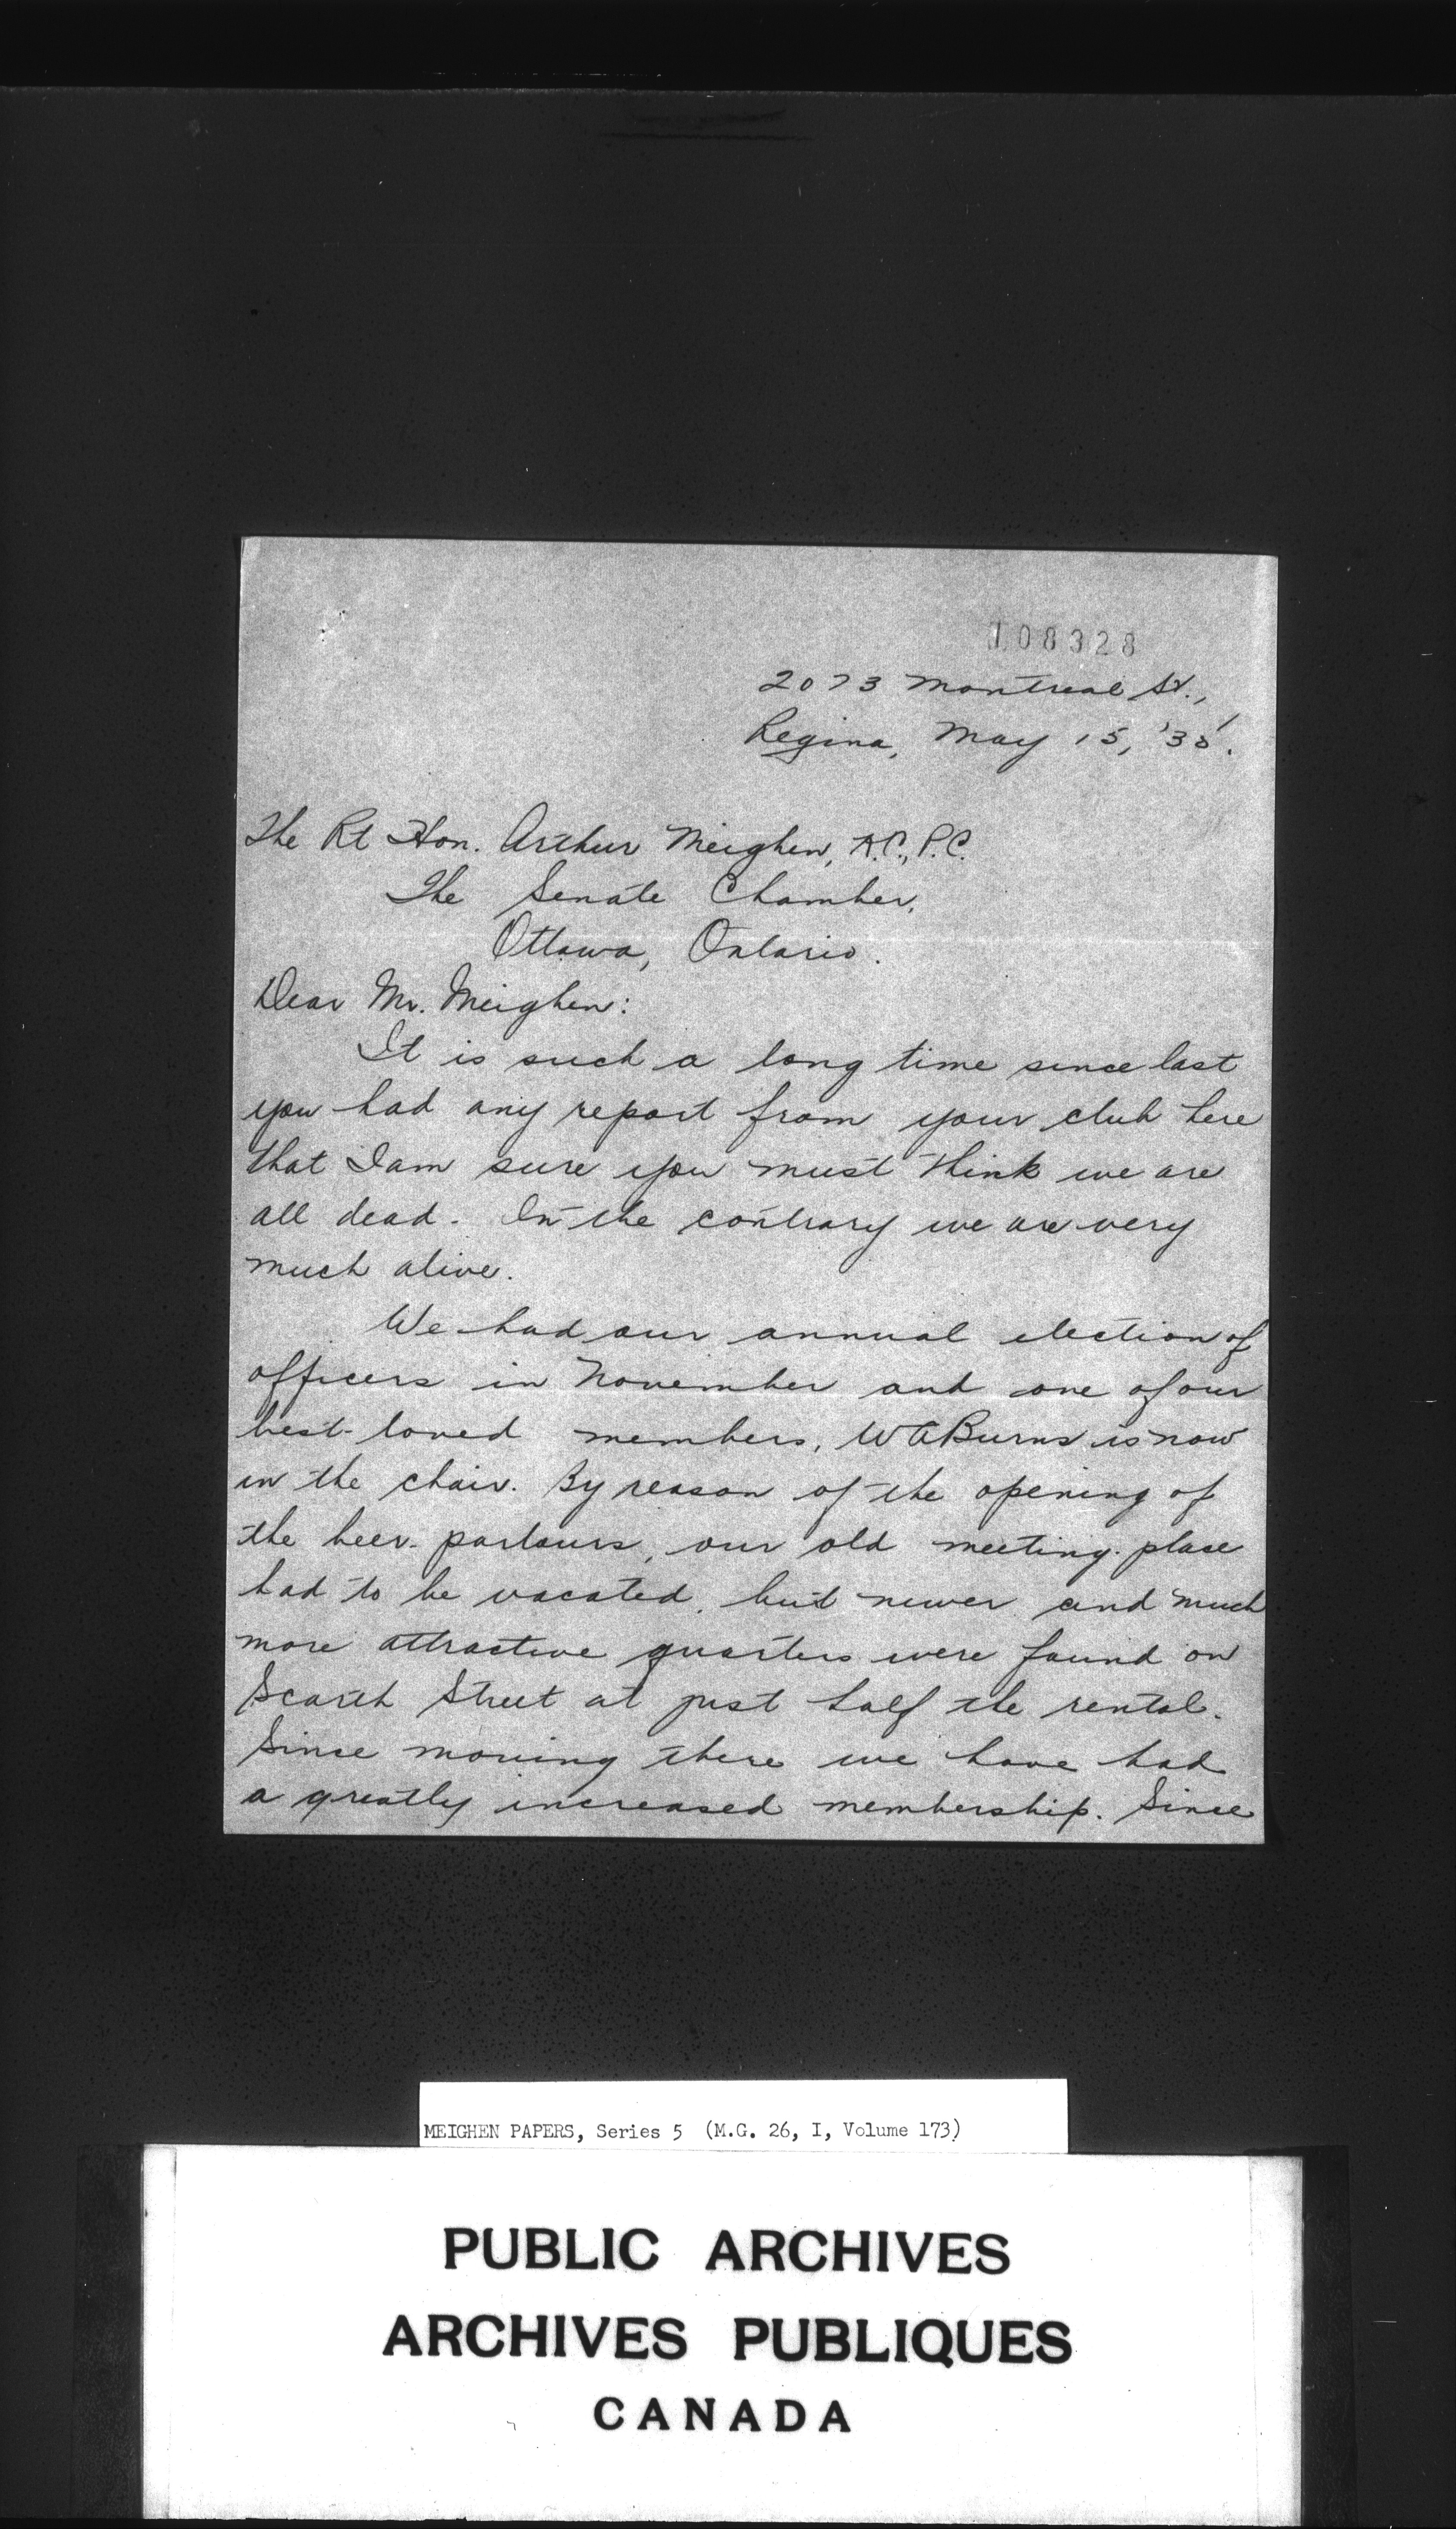 108328
2073 Montreal St.,
Regina, May 15, '35.
The Rt Hon. Arthur Meighen, K.C., P.C.
The Senate Chamber,
Ottawa, Ontario.
Dear Mr. Meighen:
It is such a long time since last
you had any report from your club here
that I am sure you must think we are
all dead. On the contrary we are very
much alive.
We had our annual election of
officers in November and one of our
best-loved members, W A Burns is now
in the chair. By reason of the opening of
the beer-parlours, our old meeting-place
had to be vacated, but newer and much
more attractive quarters were found on
Scarth Street at just half the rental.
Since moving there we have had
a greatly increased membership. Since
MEIGHEN PAPERS, Series 5 (M.G. 26, I, Volume 173)
PUBLIC ARCHIVES
ARCHIVES PUBLIQUES
CANADA